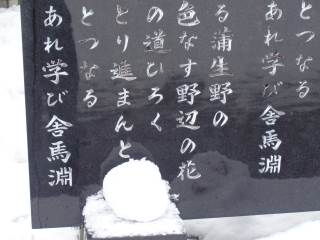 とつなる
あれ学び舎馬淵
る蒲生野の
色なす野辺の花
の道ひろく
とり進まんと
とつなる
あれ学び舎馬淵